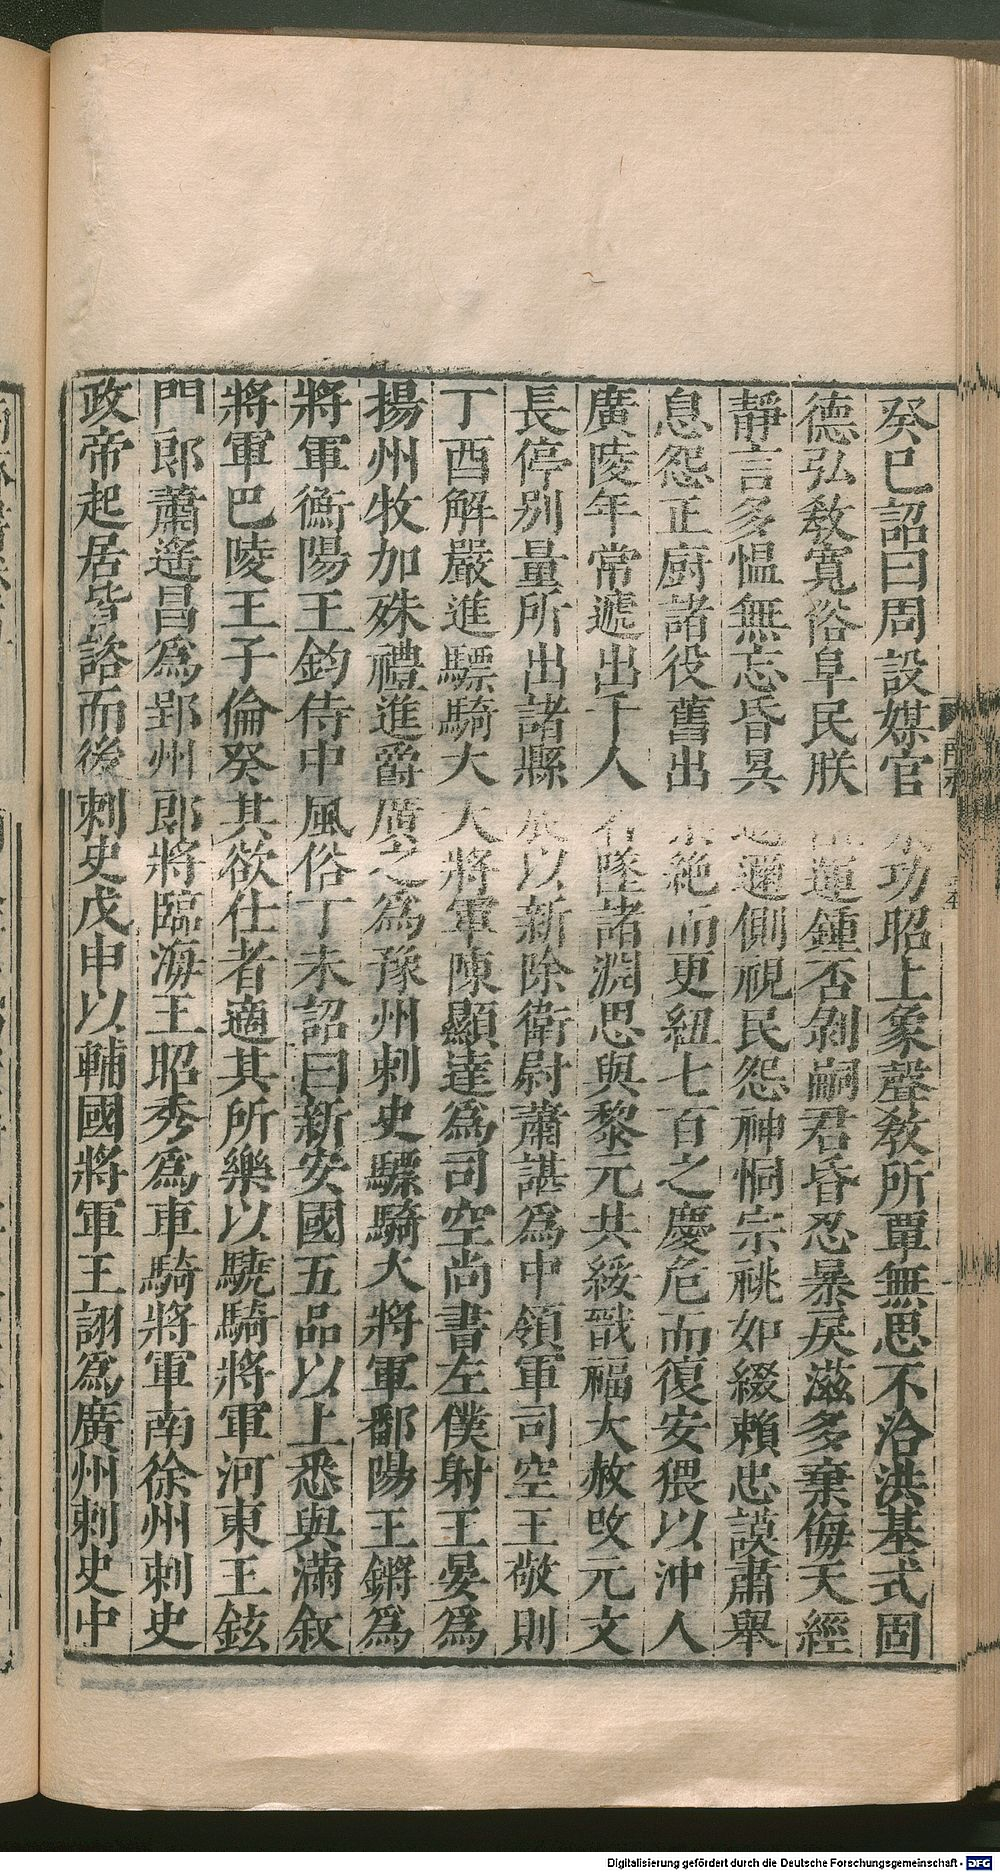 癸巳詔曰周設媒官功昭上象聲敎所覃無思不洽洪基式固
德弘敎寬俗阜民朕運鍾否剝嗣君昏忍暴戾滋多棄侮天經
靜言多愠無忘昏旲邇側視民怨神恫宗祧如綴賴忠謨肅舉
息怨正厨諸役舊出絕而更紐七百之慶危而復安猥以沖人
廣陵年常遞出千人墜諸淵思與黎元共綏戩福大赦改元文
長停別量所出諸縣以新除衛尉蕭諶爲中領軍司空王敬則
丁酉解嚴進驃騎大大將軍陳顯達爲司空尚書左僕射王晏爲
揚州牧加殊禮進爵廣之爲豫州刺史驃騎大將軍鄱陽王鏘爲
將軍衡陽王鈞侍中風俗丁未詔曰新安國五品以上悉與滿敘
將軍巴陵王子倫癸其欲仕者適其所樂以驍騎將軍河東王鉉
門郎蕭遙昌爲郢州郎將臨海王昭秀爲車騎將軍南徐州刺史
政帝起居皆諮而後刺史戊申以輔國將軍王詡爲廣州刺史中
Digitalisierung gefördert durch die Deutsche Forschungsgemeinschaft - DFG